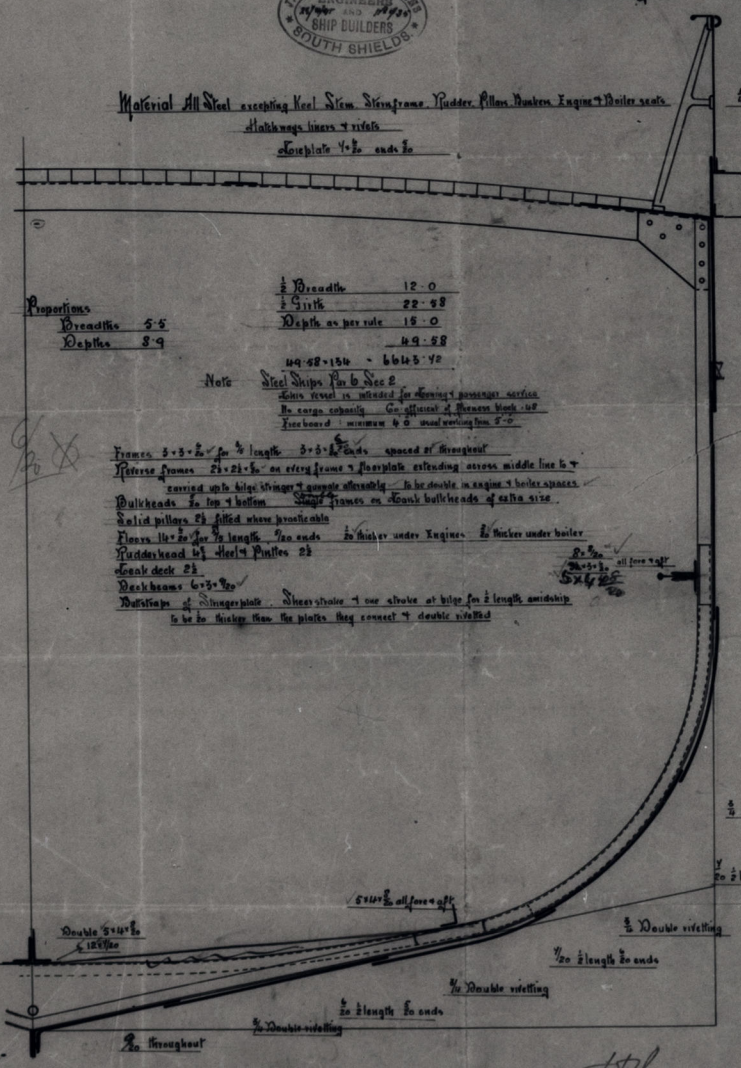 ENGINEERS
AND
SHIP BUILDERS
SOUTH SHIELDS.
Material All Steel excepting Keel Stem Sternframe Rudder Pillars Bunkers Engine & Boiler seats
Hatchways liners & rivets
Proportions
Breadths 5.5
Depths 8.9
½ Breadth 12.0
½ Girth 22.58
Depth as per rule 15.0
49.58
49.58 × 134 = 6643.72
Note Steel Ships Par 6 Sec 2
This vessel is intended for towing & passenger service
No cargo capacity Co-efficient of fineness block .48
Freeboard minimum 4.0 usual working trim 5.0
Frames 3 × 3 × for length 3 × 3 × ends spaced 21 throughout
Reverse frames 2½ × 2½ × on every frame & floorplate extending across middle line to &
carried up to bilge stringer & gunwale alternately to be double in engine & boiler spaces
Bulkheads top & bottom frames on bulkheads of extra size
Solid pillars 2½ fitted where practicable
Floors 14 × for length ends thicker under Engines thicker under boiler
Rudderhead Heel & Pintles 2½
deck 2½
Deckbeams 6 × 3 × 9/20
Buttstraps of Stringerplate Sheerstrake & one strake at bilge for ½ length amidship
to be thicker than the plates they connect & double rivetted
all fore & aft
5 × 4 × all fore & aft
Double 5 × 4 ×
Double rivetting
7/20 ½ length ends
Double rivetting
½ length ends
Double rivetting
throughout